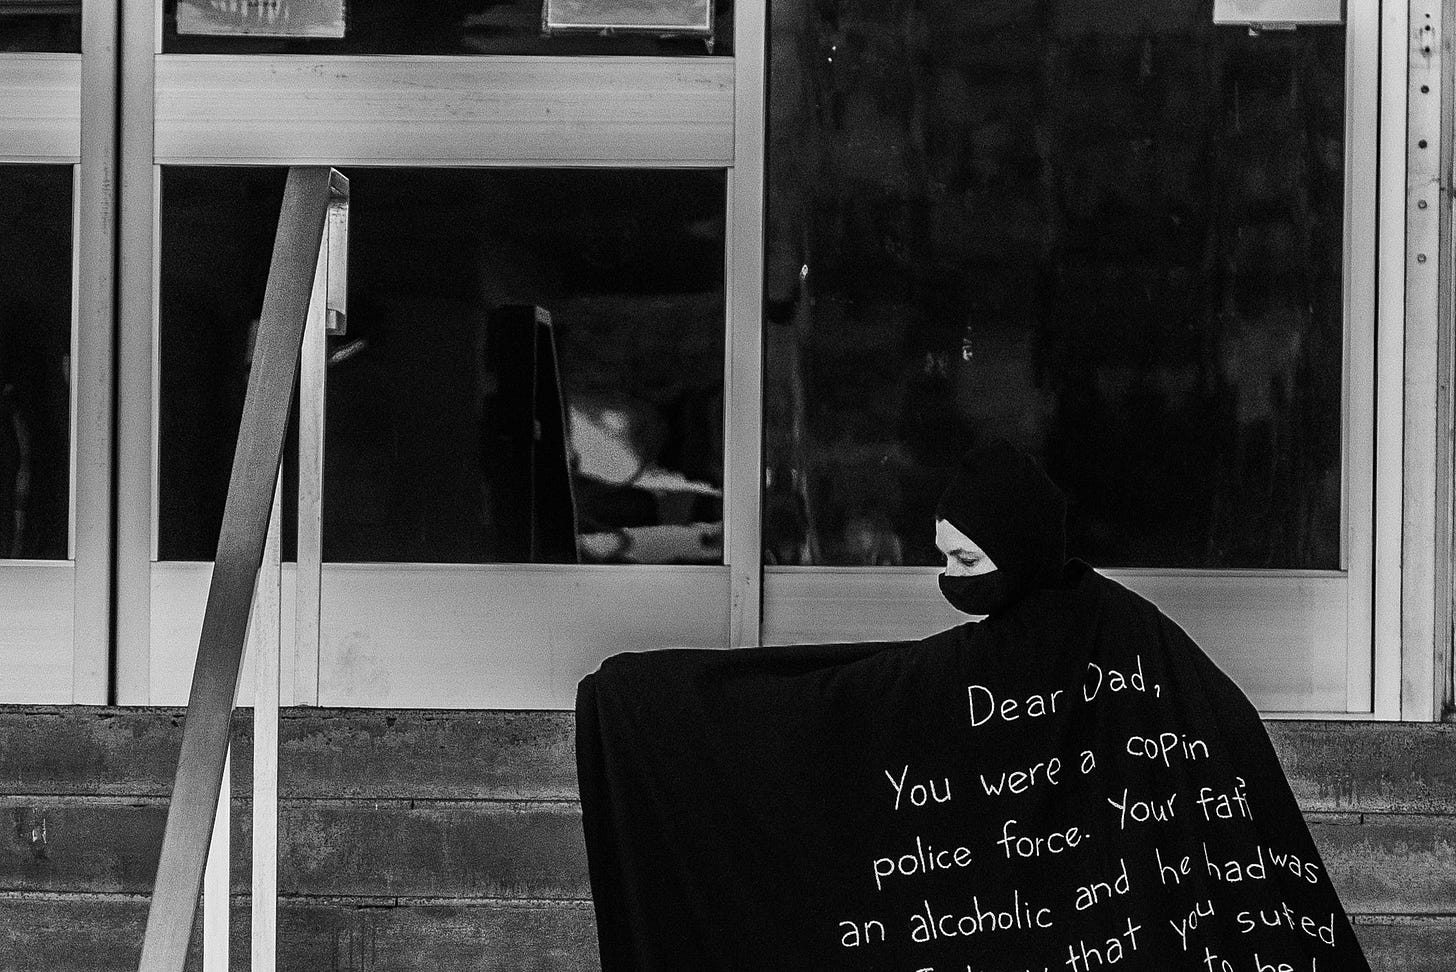 Dear Dad,
You were a cop in
police force. Your
an alcoholic and he had was
that you
to be